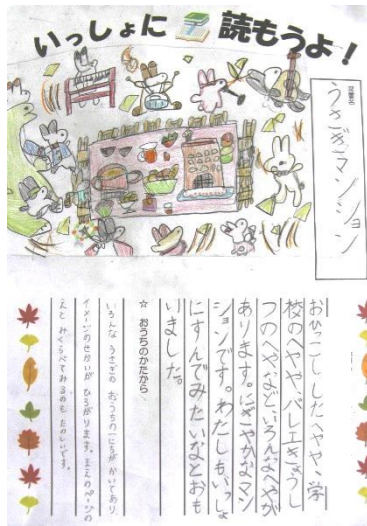 いっしょに読もうよ！
図書名
うさぎマンション
おひっこししたへやや、学
校のへやや、バレエきょうし
つのへやなどいろんなへやが
あります。にぎやかなマン
ションです。わたしもいっしょ
にすんでみたいなとおも
いました。
☆ おうちのかたから
いろんな うさぎの おうちの一にちが かいてあり
イメージのせかいが ひろがります。まえのページの
えと みくらべてみるのも たのしいです。